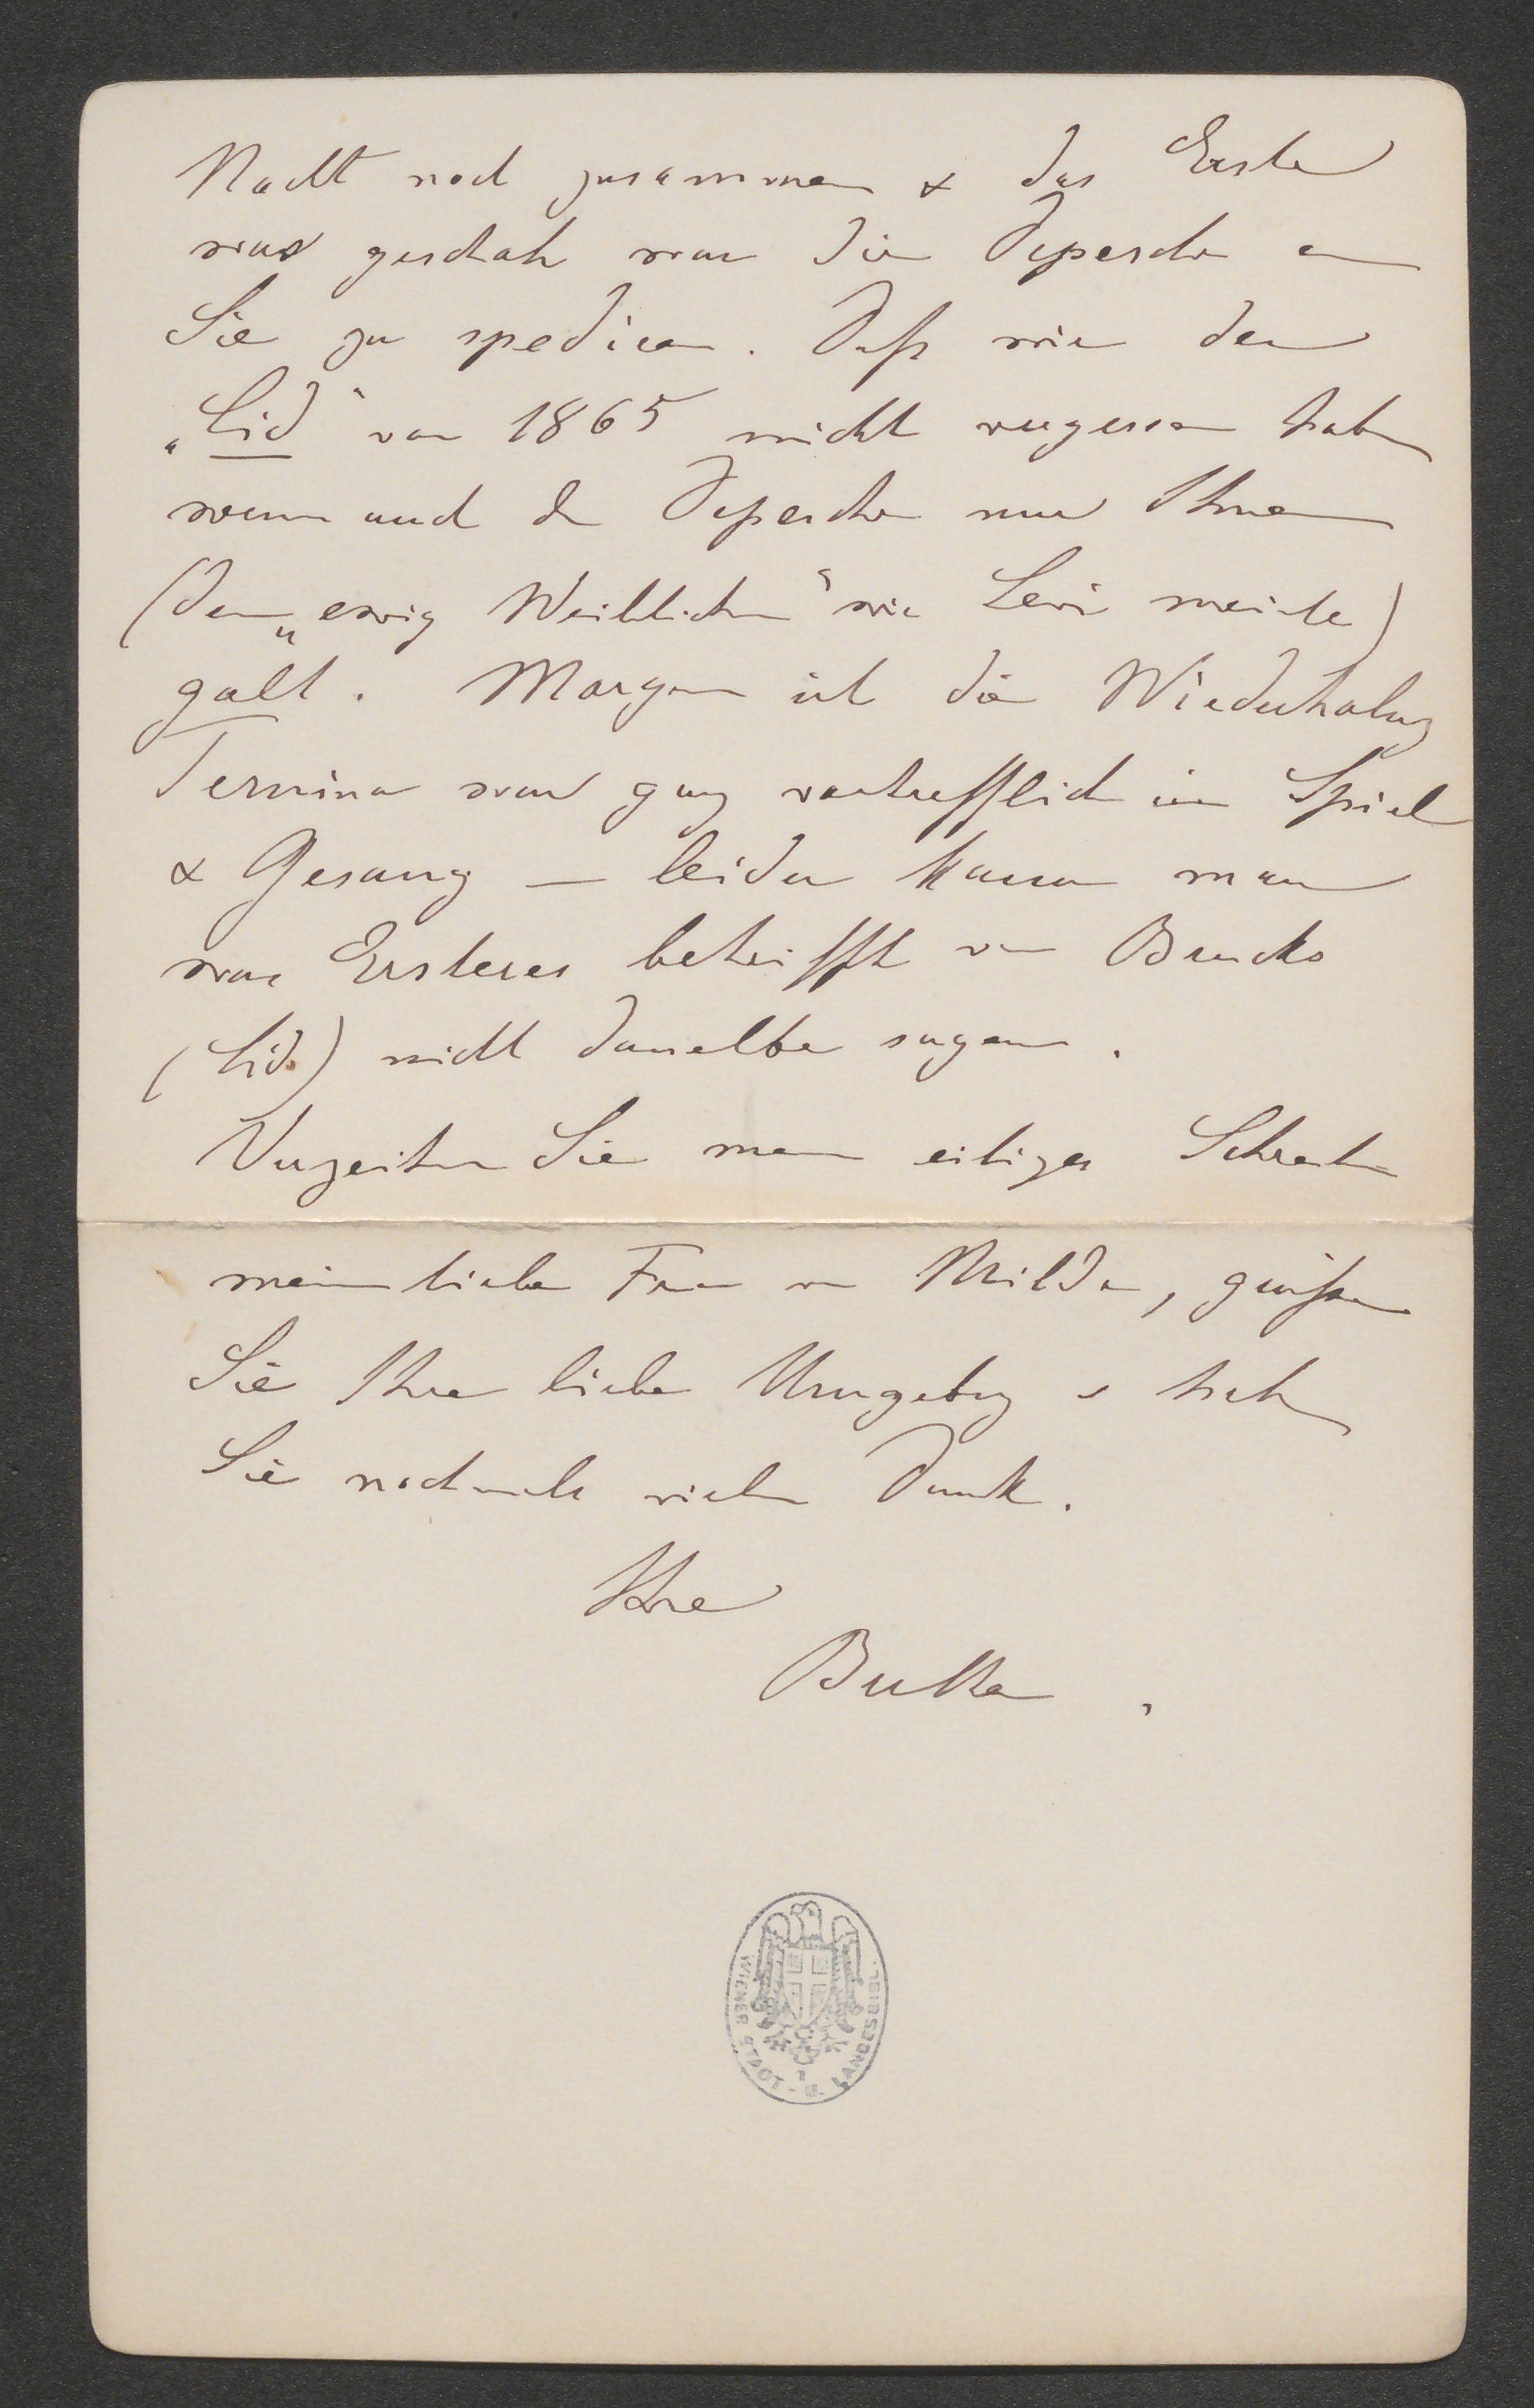 Nacht noch zusammen & das Erste
was geschah war die Depesche an
Sie zu spediren. Daß wir den
„Cid“ von 1865 nicht vergessen haben
wenn auch die Depesche nur Ihnen
(dem „ewig Weiblichen“ wie Levi meinte)
galt. Morgen ist die Wiederholung
Ternina war ganz vortrefflich im Spiel
& Gesang – leider kann man
was Ersteres betrifft von Brucks
(Cid) nicht dasselbe sagen.
Verzeihen Sie mein eiliges Schreiben
meine liebe Frau von Milde, grüßen
Sie Ihre liebe Umgebung & haben
Sie nochmals vielen Dank.
Ihre
WIENER STADT- U. LANDESBIBL.